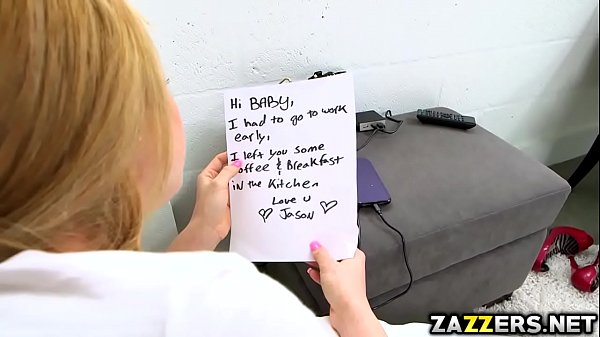 Hi BABY,
I had to go to work
early,
I left you some
coffee & Breakfast
in the Kitchen
Love u
Jason
ZAZZERS.NET